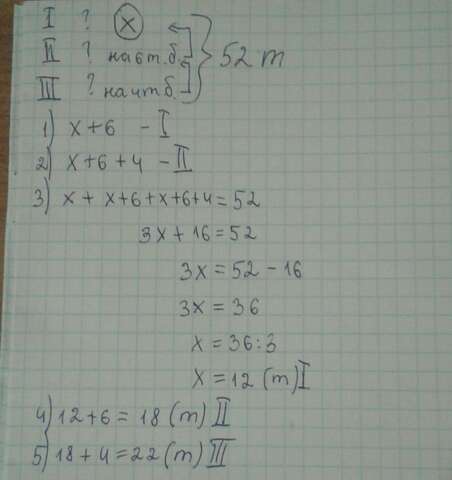 I ? x
II ? на 6 т. б. } 52 т
III ? на 4 т б.
1) x + 6 - I
2) x + 6 + 4 - II
3) x + x + 6 + x + 6 + 4 = 52
3x + 16 = 52
3x = 52 - 16
3x = 36
x = 36 : 3
x = 12 (т) I
4) 12 + 6 = 18 (т) II
5) 18 + 4 = 22 (т) III